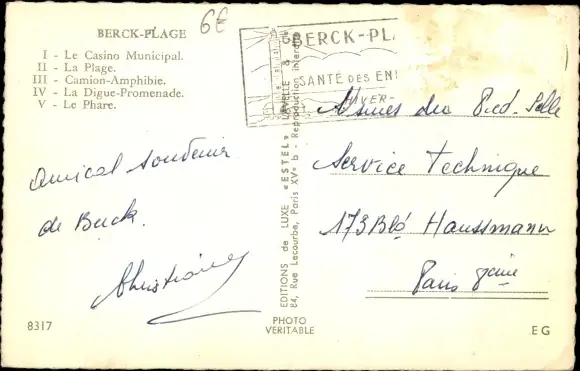 BERCK-PLAGE
I - Le Casino Municipal.
II - La Plage.
III - Camion-Amphibie.
IV - La Digue-Promenade.
V - Le Phare.
6€
BERCK-PLA
SANTÉ DES EN
HIVER-
Amical souvenir
de Berck.
Christiane
EDITIONS de LUXE «ESTEL» LAVELLE &
84, Rue Lecourbe, Paris XVe b - Reproduction interdite
Usines du Pied-Selle
Service Technique
173 Bld Haussmann
Paris 8ème
8317
PHOTO
VERITABLE
EG